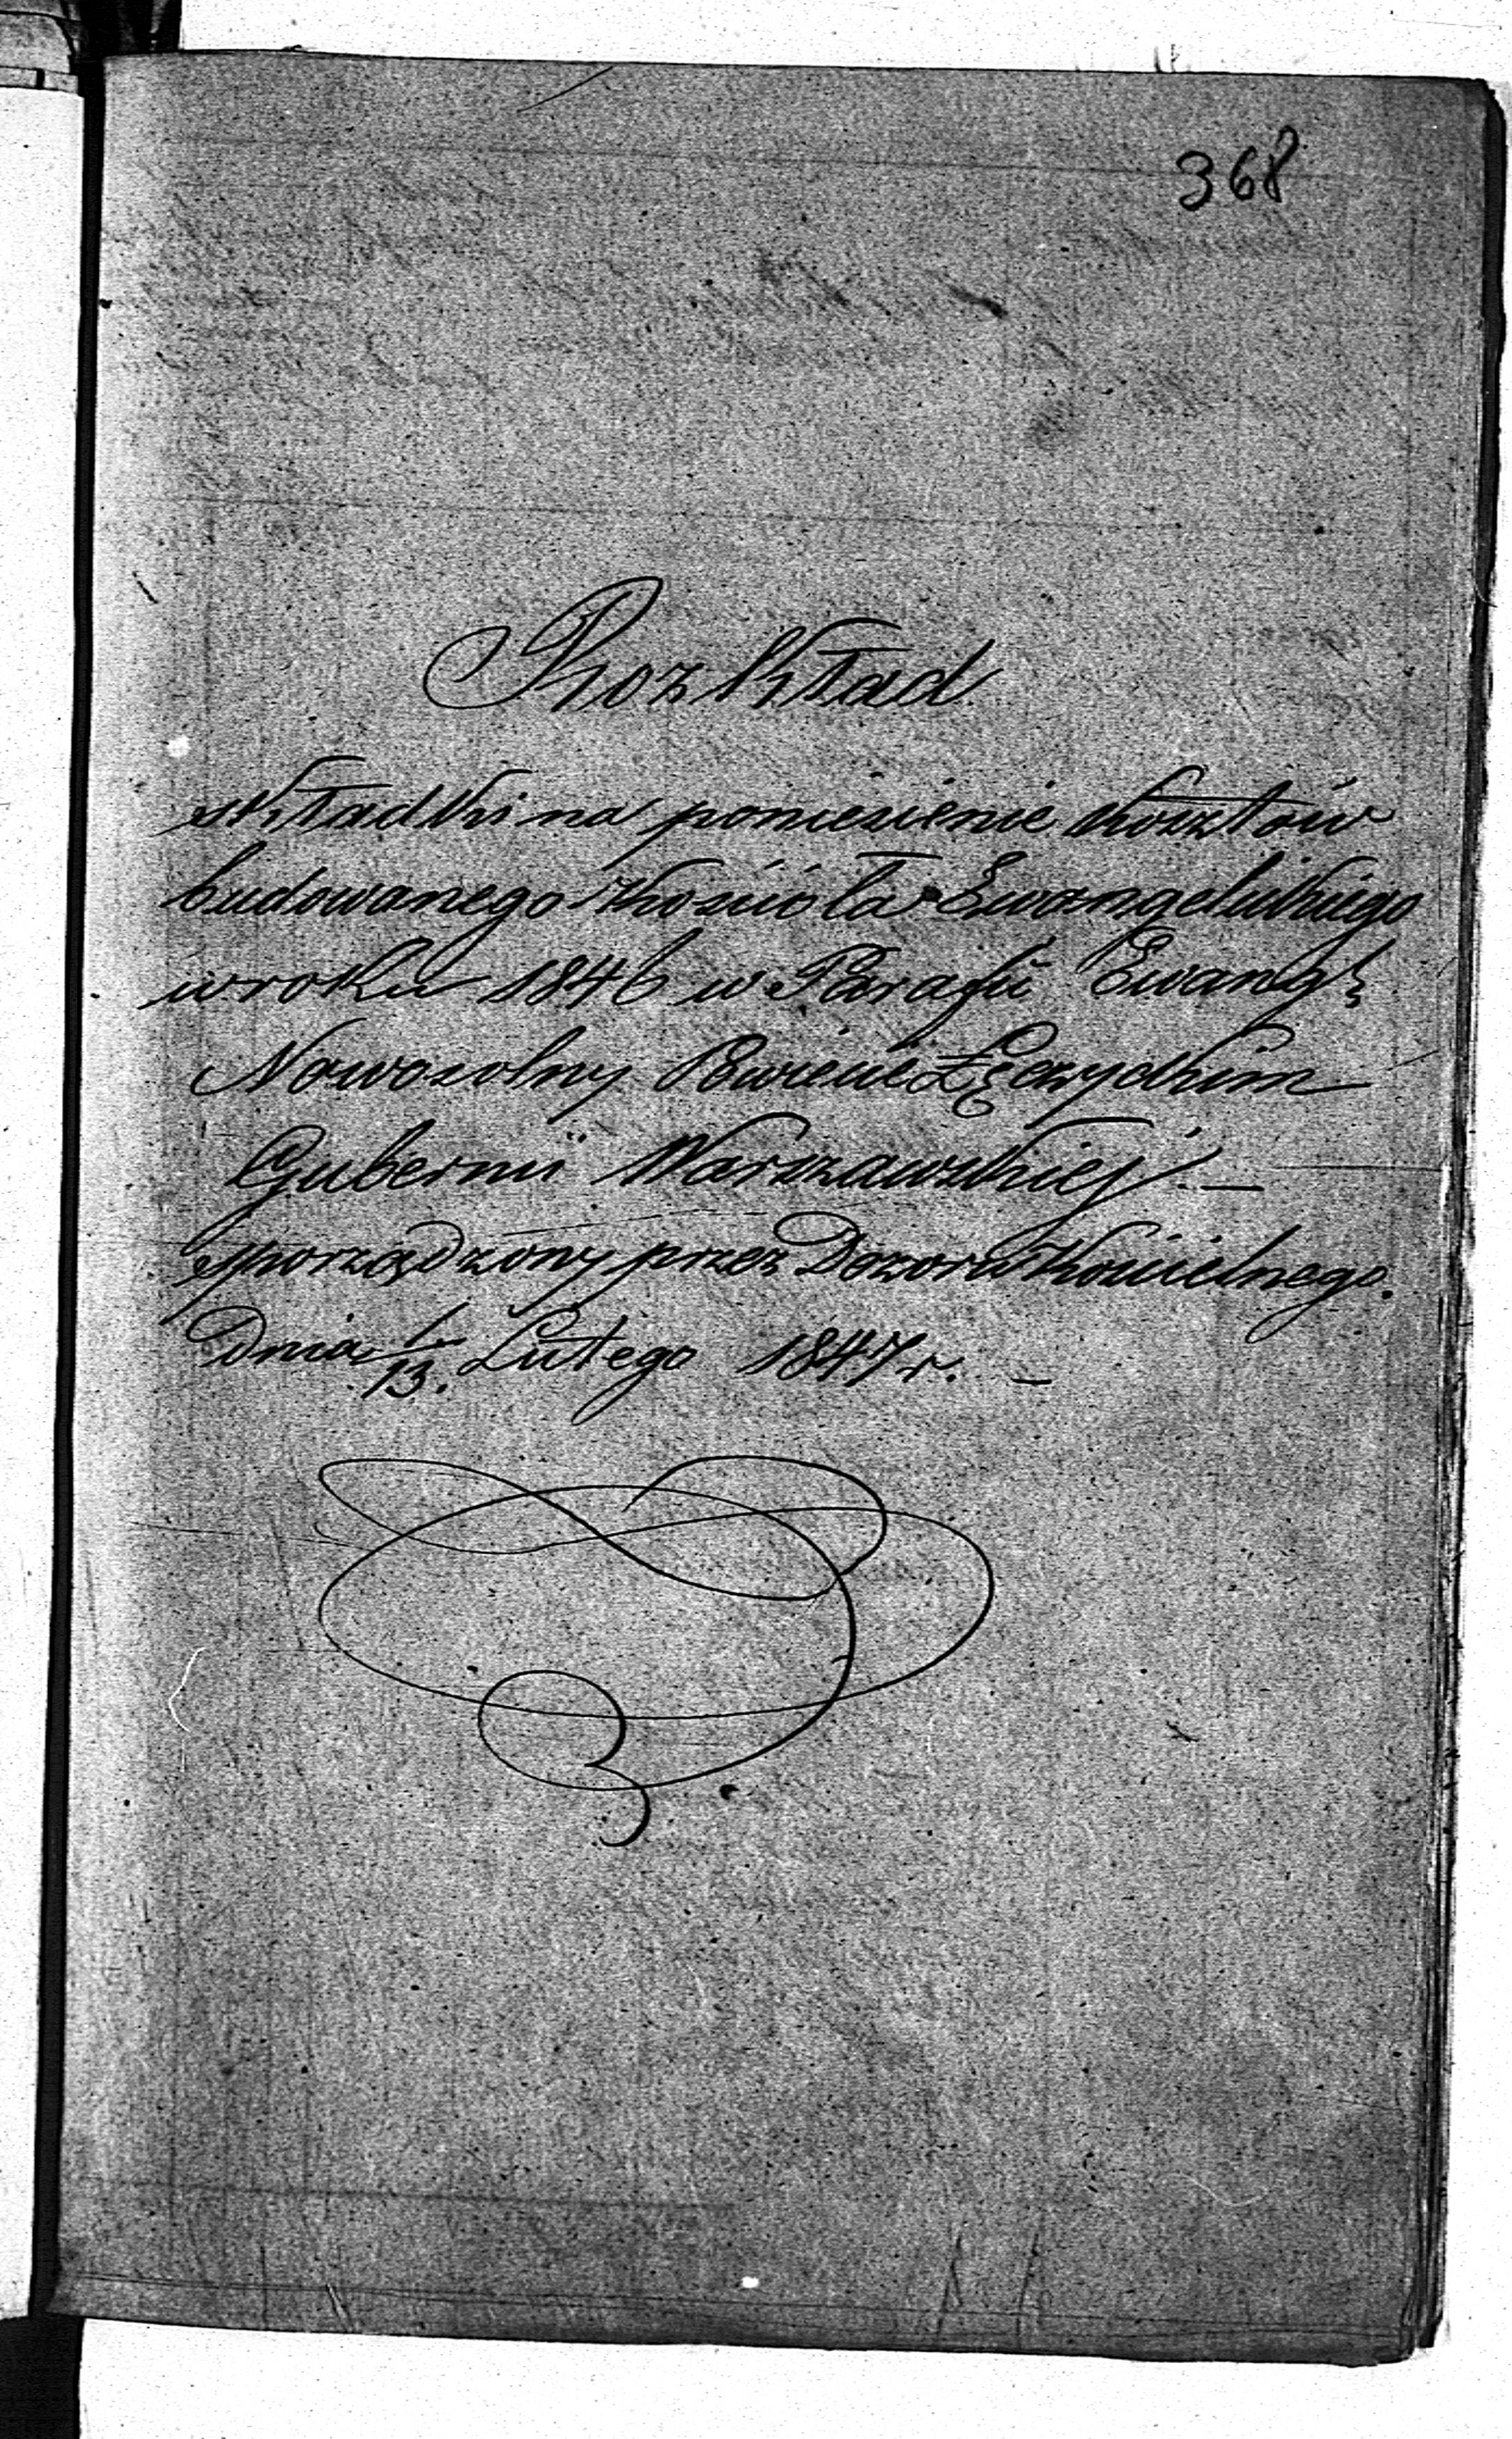 368
Rozkład
składki na poniesienie kosztów
budowanego kościoła Ewangelickiego
w roku 1846 w Parafii Ewang:
Nowosolny Powiecie Łęczyckim
Gubernii Warszawskiej. —
sporządzony przez Dozoru Kościelnego.
Dnia 1/13. Lutego 1847 r. —